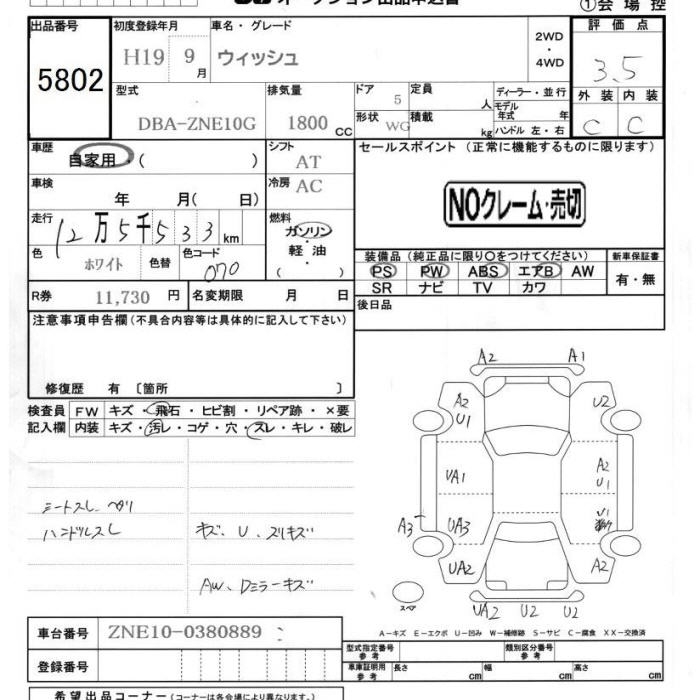 オークション出品申込書
①会場控
出品番号 初度登録年月 車名・グレード 2WD・4WD 評価点
5802 H19 9月 ウィッシュ 3.5
型式 排気量 ドア 5 定員 人 ディーラー・並行 外装 内装
DBA-ZNE10G 1800cc 形状 WG 積載 kg モデル年式 年 ハンドル 左・右 C C
車歴 自家用・( ) シフト AT セールスポイント (正常に機能するものに限ります)
車検 年 月( 日) 冷房 AC
NOクレーム・売切
走行 12万5千533km 燃料 ガソリン・軽油 ( )
色 ホワイト 色替 色コード 070
装備品(純正品に限り○をつけてください) 新車保証書
PS PW ABS エアB AW 有・無
SR ナビ TV カワ
R券 11,730円 名変期限 月 日 後日品
注意事項申告欄(不具合内容等は具体的に記入して下さい)
修復歴 有 〔箇所 〕
検査員 FW キズ・飛石・ヒビ割・リペア跡・×要
記入欄 内装 キズ・汚レ・コゲ・穴・スレ・キレ・破レ
シートスレ ヘタリ
ハンドルスレ キズ、U、スリキズ
AW、Dミラーキズ
A2 A1
A2 U1 U2
UA1 A2 U1
A3 UA3 U1
UA2 A2
スペア
UA2 U2 U2
A-キズ E-エクボ U-凹み W-補修跡 S-サビ C-腐食 XX-交換済
車台番号 ZNE10-0380889
登録番号
型式指定番号 参考 類別区分番号 参考
車庫証明用 参考 長さ cm 幅 cm 高さ cm
希望出品コーナー(コーナーは各会場により異なります。)